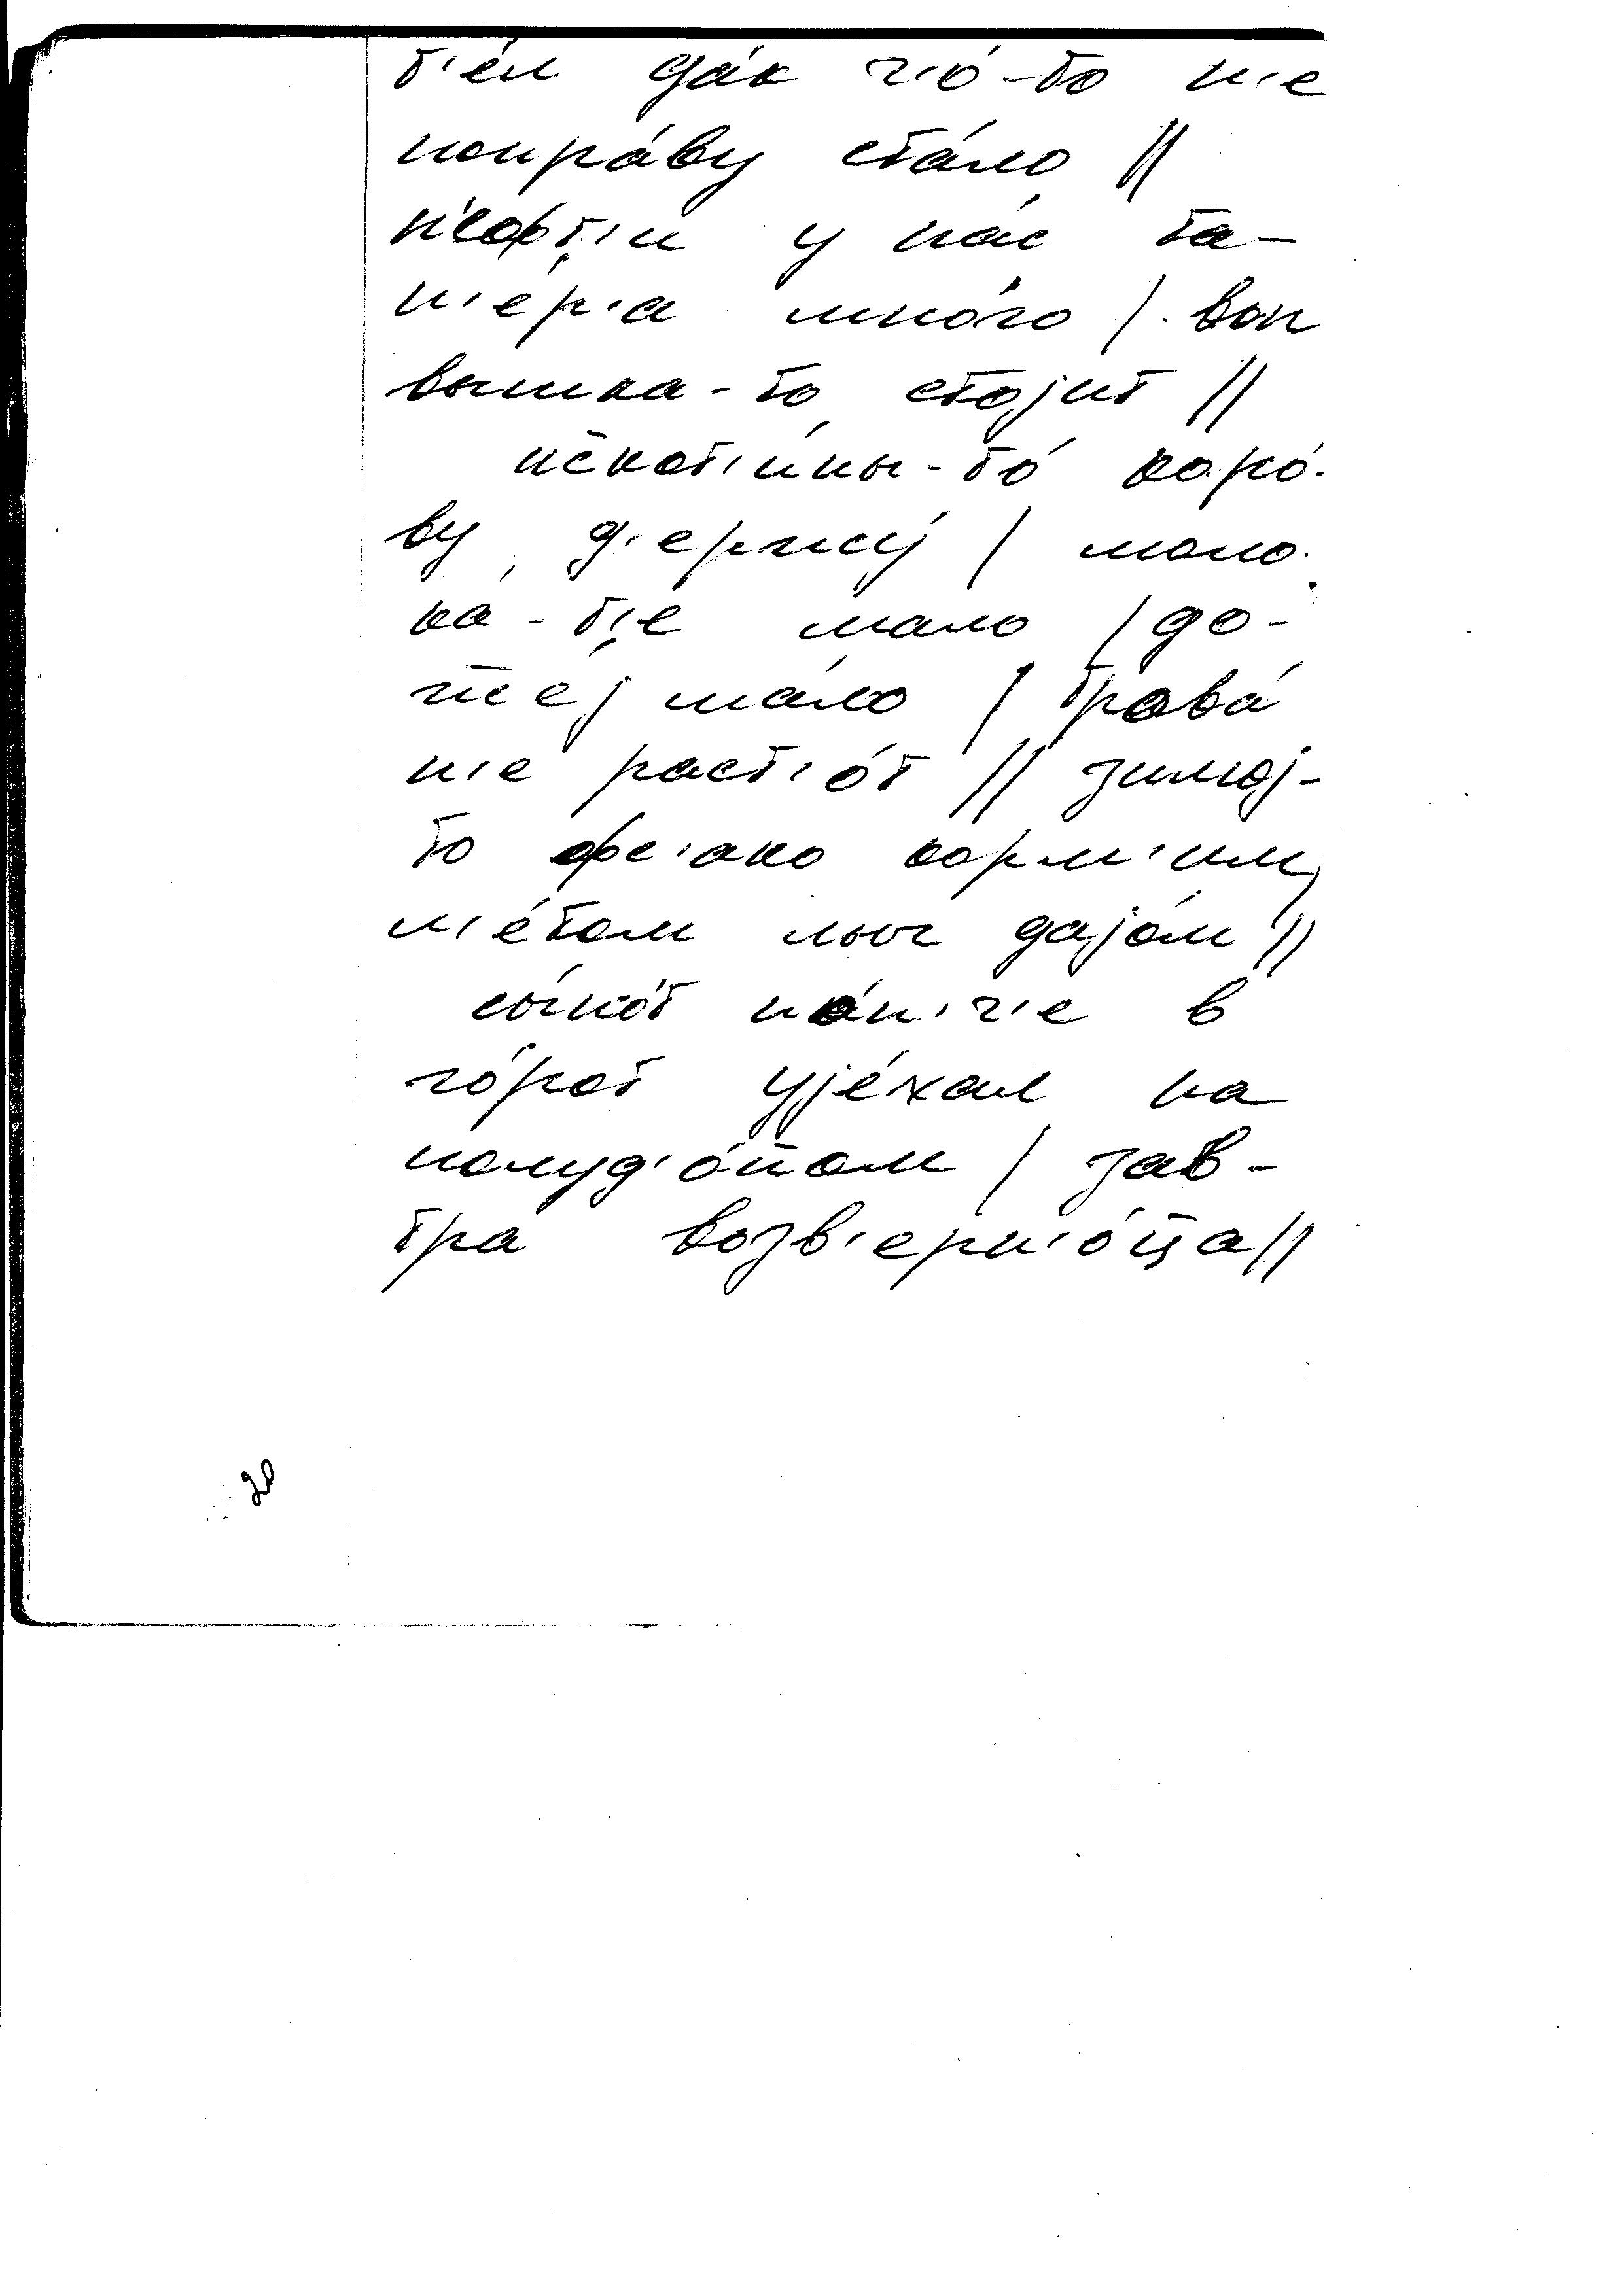 т'ем да́к ч'о́-то н'е
попра́ву ста́ло //
н'ефт'и у на́с та-
п'е́р'а мно́го / вон
вышка-то стоjит //
искот'и́ны-то́ коро́-
ву д'ержу́ / моло-
ка́-т'е мало / до-
ждеj ма́ло / трава́
н'е раст'о́т // зимоj-
то фс'ако корм'им,
л'е́том мы дајо́м //
сы́но́т но́н'ч'е в
го́рот уjе́хал на
полуд'о́нном / зав-
тра возв'ерн'о́ца //
20